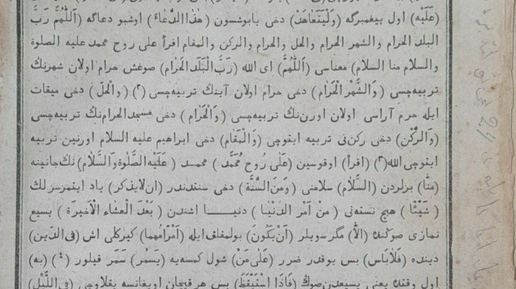 (عَلَيْهِ) اول پيغمبرگه (وَلْيَتَعَاهَدْ) دخی يابوشسون (هٰذَا الدُّعَاءَ) اوشبو دعاگه (اَللّٰهُمَّ رَبَّ
البلد الحرام والشهر الحرام والحل والحرام والركن والمقام اقرأ على روح محمد عليه الصلوة
والسلام منا السلام) معناسی (اَللّٰهُمَّ) ای الله (رَبَّ الْبَلَدِ الْحَرَامِ) صوغش حرام اولان شهرنك
تربيه‌چیسی (وَالشَّهْرِ الْحَرَامِ) دخی حرام اولان آينك تربيه‌چیسی (٢) (والحل) دخی ميقات
ايله حرم آراسی اولان اورن‌نك تربيه‌چیسی (وَالْحَرَامِ) دخی مسجد الحرام‌نك تربيه‌چیسی
(وَالرُّكْنِ) دخی ركن‌نی تربيه ايقوچی (وَالْمَقَامِ) دخی ابراهيم عليه السلام اورنين تربيه
ايقوچی الله (٣) (اقرأ) اوقوسين (عَلَى رُوحِ مُحَمَّدٍ) محمد (عَلَيْهِ الصَّلٰوةُ وَالسَّلَامُ) نك جانينه
(مِنَّا) برلردن (السَّلَامَ) سلامنی (وَمِنَ السُّنَّةِ) دخی سنتدندر (ان لايذكر) ياد ايتمزسزلك
(شَيْئًا) هيچ نسته‌نی (مِنْ اَمْرِ الدُّنْيَا) دنيا اشندن (بَعْدَ الْعِشَاءِ الْاَخِيرَةِ) يسيع
نمازی صوڭنده (الا) مگر سويلر (اَنْ يَكُونَ) بولمقلق ايله (اَمْرًا مُهِمًّا) كيركلی اش (فی الدين)
دينده (فَلَا بَأْسَ) بس يوقدر ضرر (عَلَى مَنْ) شول كمسه‌يه (يَسْمُرُ) سمر قيلور (٤) (به)
اول وقتده يعنی يسيعدن صوڭ (فَاِذَا اسْتَيْقَظَ) بس هر قچان اويغانسه (فی اللَّيْلِ)